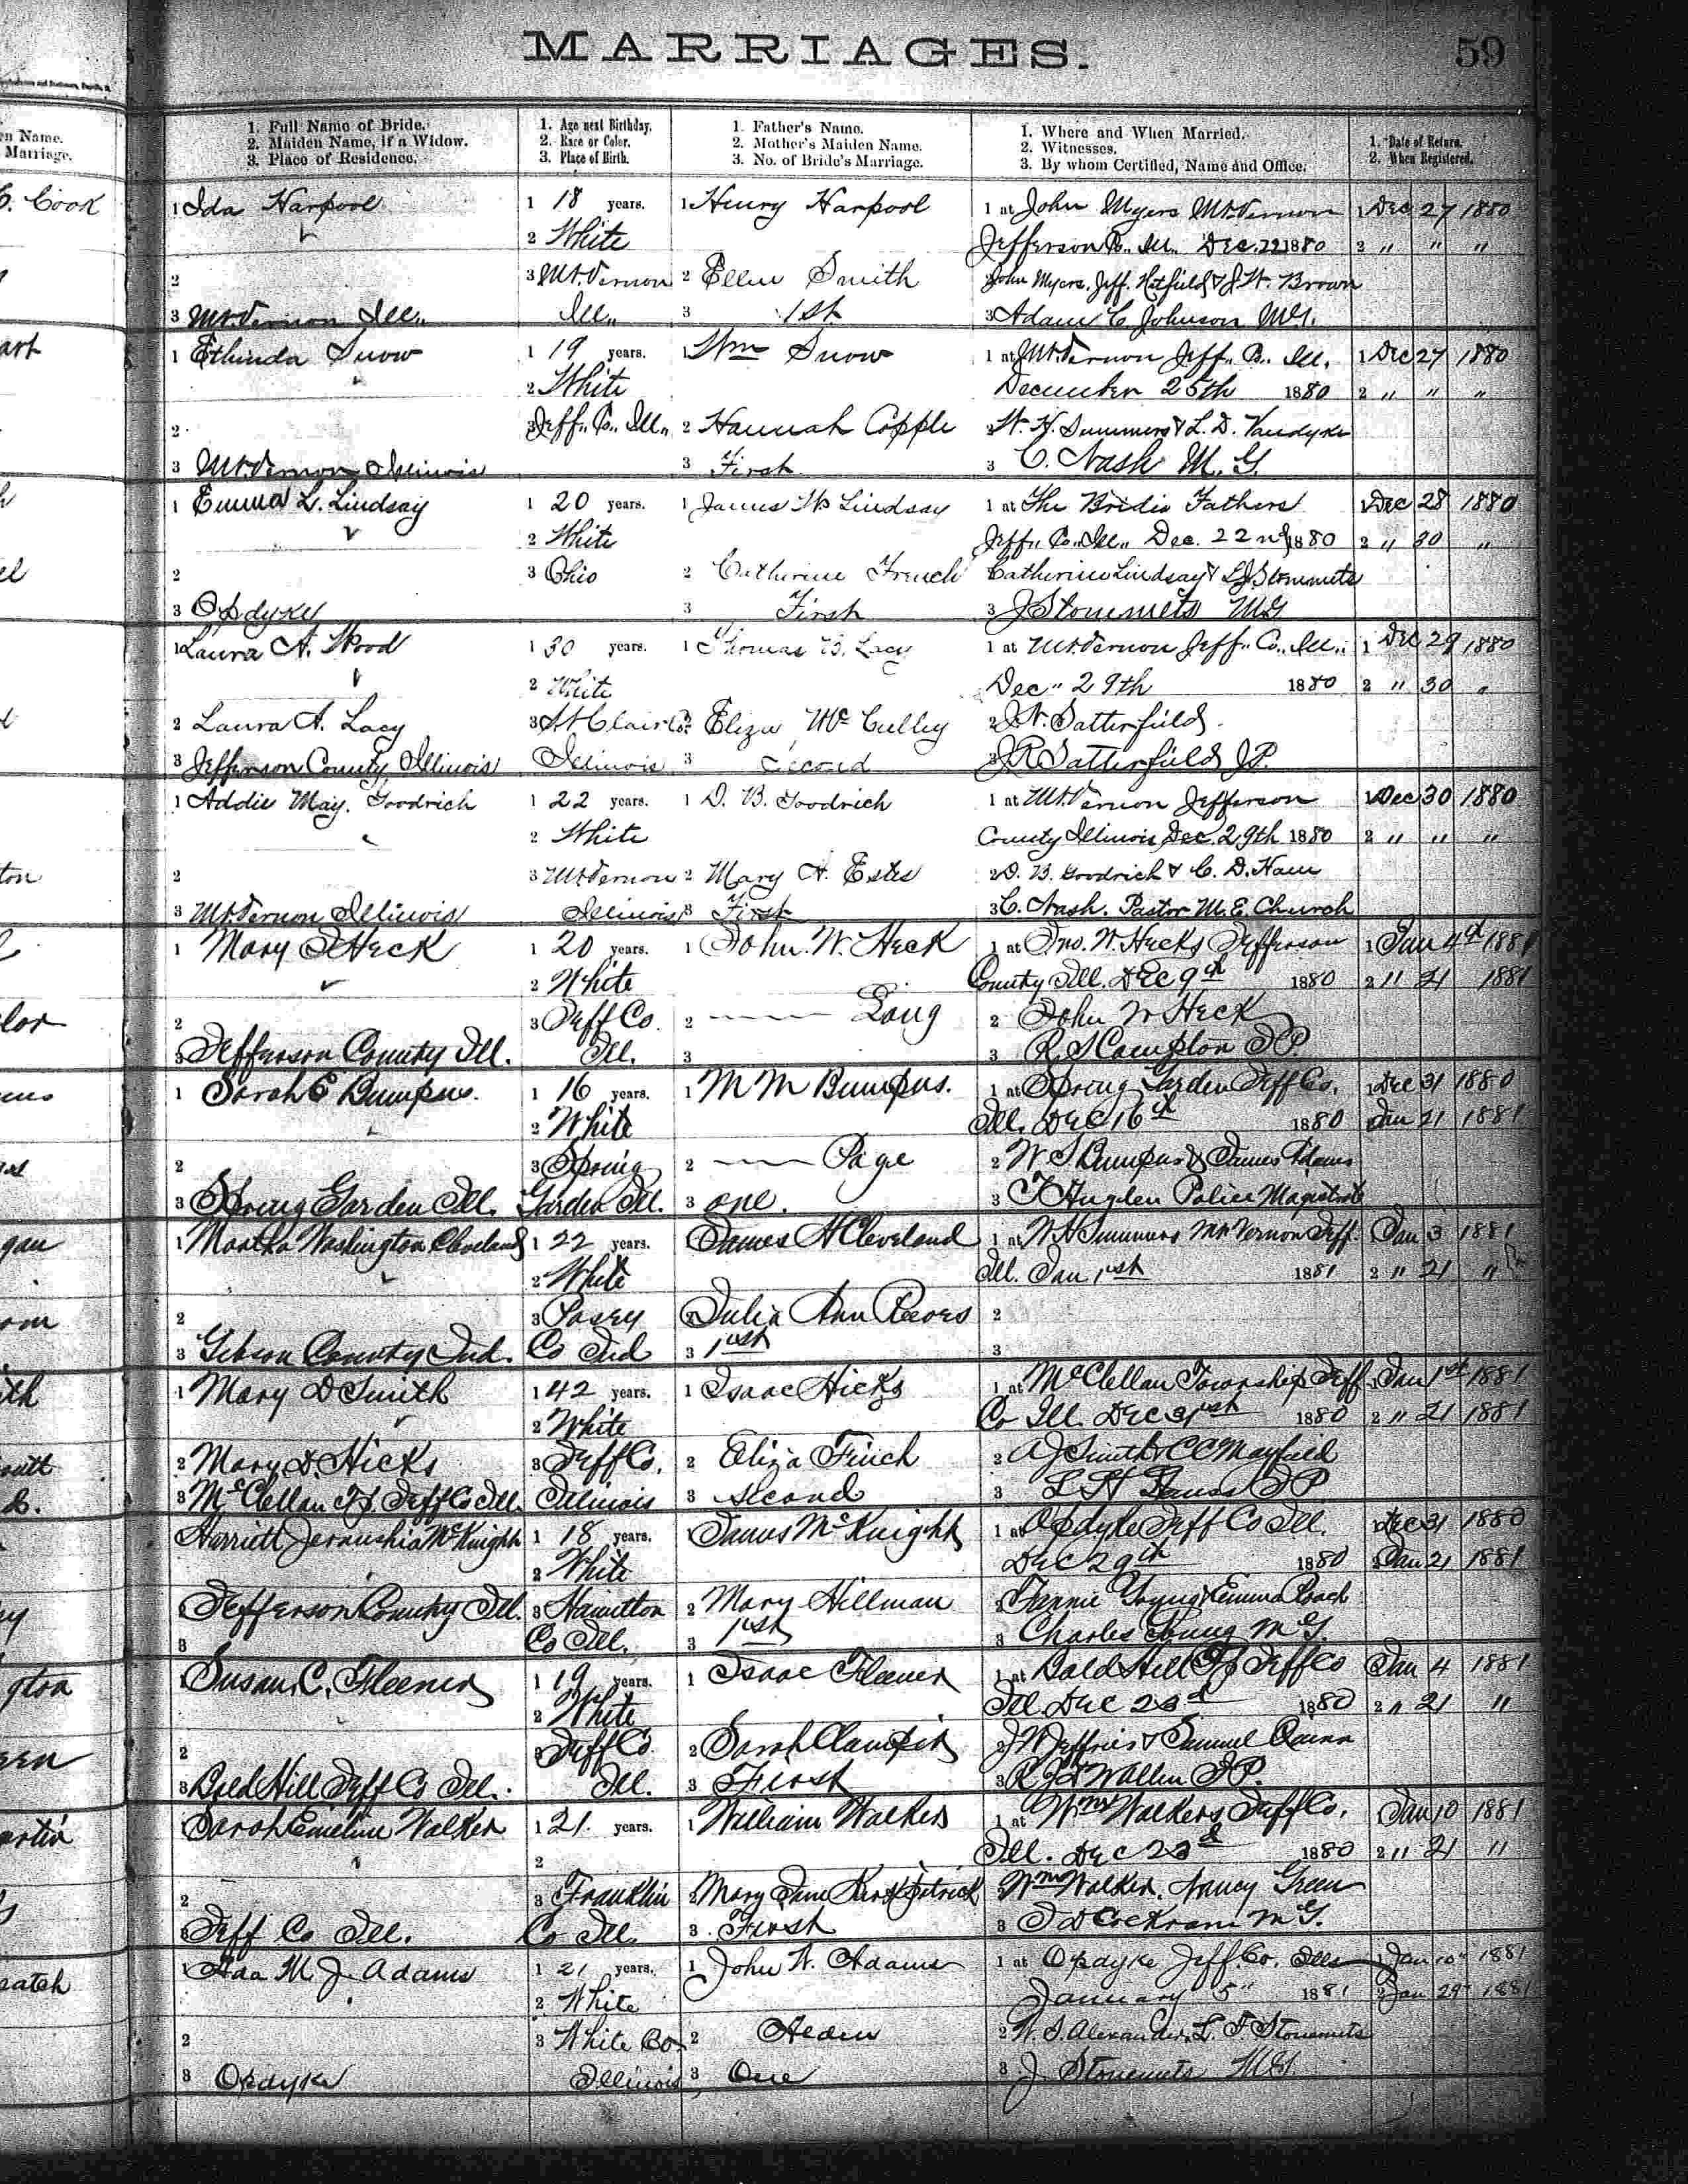 MARRIAGES.
59
1. Full Name of Bride.
2. Maiden Name, if a Widow.
3. Place of Residence.
1. Age next Birthday.
2. Race or Color.
3. Place of Birth.
1. Father's Name.
2. Mother's Maiden Name.
3. No. of Bride's Marriage.
1. Where and When Married.
2. Witnesses.
3. By whom Certified, Name and Office.
1. Date of Return.
2. When Registered.
en Name.
Marriage.
C. Cook
1 Ida Harpool 1 18 years. 1 Henry Harpool 1 at John Myers Mt. Vernon 1 Dec 27 1880
2 White Jefferson Co. Ill. Dec. 22 1880 2 " " "
2 3 Mt. Vernon 2 Ellen Smith John Myers, Jeff. Hatfield & J. W. Brown
3 Mt. Vernon Ill. Ill. 3 1st 3 Adam C Johnson M.G.
1 Ethinda Snow 1 19 years. 1 Wm Snow 1 at Mt. Vernon Jeff. Co. Ill. 1 Dec 27 1880
2 White December 25th 1880 2 " " "
2 3 Jeff. Co. Ill. 2 Hannah Copple 2 W. H. Summers & L. D. Vandyke
3 Mt. Vernon Illinois 3 First 3 C. Nash M. G.
1 Emma L. Lindsay 1 20 years. 1 James W Lindsay 1 at The Brides Fathers 1 Dec 28 1880
2 White Jeff. Co. Ill. Dec. 22nd 1880 2 " 30 "
2 3 Ohio 2 Catherine French Catherine Lindsay & L. J. Stommets
3 Opdyke 3 First 3 J Stommets MG
1 Laura A. Wood 1 30 years. 1 Thomas B. Lacy 1 at Mt. Vernon Jeff. Co. Ill. 1 Dec 29 1880
2 White Dec 29th 1880 2 " 30 "
2 Laura A. Lacy 3 St Clair Co. 2 Eliza McCulley 2 J. N. Satterfield.
3 Jefferson County Illinois Illinois 3 Second 3 J R Satterfield J.P.
1 Addie May. Goodrich 1 22 years. 1 D. B. Goodrich 1 at Mt. Vernon Jefferson 1 Dec 30 1880
2 White County Illinois Dec. 29th 1880 2 " " "
2 3 Mt. Vernon 2 Mary A. Estes 2 D. B. Goodrich & C. D. Ham
3 Mt. Vernon Illinois Illinois 3 First 3 C. Nash. Pastor M. E. Church
1 Mary S Heck 1 20 years. 1 John. W. Heck 1 at Jno. W. Hecks Jefferson 1 Jan 4th 1881
2 White County Ill. Dec 9th 1880 2 " 21 1881
2 3 Jeff Co. 2 —— Long 2 John W Heck
3 Jefferson County Ill. Ill. 3 3 R. S Compton J P.
1 Sarah E Bumpus. 1 16 years. 1 M M Bumpus. 1 at Spring Garden Jeff Co. 1 Dec 31 1880
2 White Ill. Dec 16th 1880 Jan 21 1881
2 3 Spring 2 —— Page 2 W S Bumpus & James Adams
3 Spring Garden Ill. Garden Ill. 3 one. 3 Police Magistrate
1 Martha Washington Cleveland 1 22 years. James H Cleveland 1 at W H Summers Mt Vernon Jeff. Jan 3 1881
2 White Ill. Jan 1st 1881 2 " 21 "
2 3 Posey 2 Julia Ann Reeves 2
3 Gibson County Ind. Co Ind 3 1st 3
1 Mary D Smith 1 42 years. 1 Isaac Hicks 1 at McClellan Township Jeff Jan 1st 1881
2 White Co Ill. Dec 31st 1880 2 " 21 1881
2 Mary D. Hicks 3 Jeff Co. 2 Eliza Finch 2 A J Smith & C C Mayfield
3 McClellan Tp. Jeff Co Ill. Illinois 3 second 3 L H J P
Harriett Jeraushia McKnight 1 18 years. James McKnight 1 at Opdyke Jeff Co Ill. Dec 31 1880
2 White Dec 29th 1880 Jan 21 1881
Jefferson County Ill. 3 Hamilton 2 Mary Hillman Fannie Young & Emma Roach
3 Co Ill. 3 1st 3 Charles Young M G
Susan. C. Fleener 1 19 years. 1 Isaac Fleener 1 at Bald Hill Tp Jeff Co Jan 4 1881
2 White Ill. Dec 23d 1880 2 " 21 "
2 Jeff Co 2 Sarah Clampin J W Jeffries & Samuel Quinn
3 Bald Hill Jeff Co Ill. Ill. 3 First 3 Wallin J P.
Sarah Emeline Walker 1 21. years. 1 William Walker 1 at Wm Walkers Jeff Co. Jan 10 1881
2 Ill. Dec 23d 1880 2 " 21 "
2 3 Franklin 2 Mary Jane Kirkpatrick Wm Walker. Nancy Green
Jeff Co Ill. Co Ill. 3. First 3 Cockram M G.
1 Ada M. J. Adams 1 21 years. 1 John W. Adams 1 at Opdyke Jeff. Co. Ills 1 Jan 10" 1881
2 White January 5" 1881 2 Jan 29" 1881
2 3 White Co 2 Alden 2 W. S. Alexander, L. J. Stonemets
3 Opdyke Illinois 3 One 3 J Stonemets M.G.